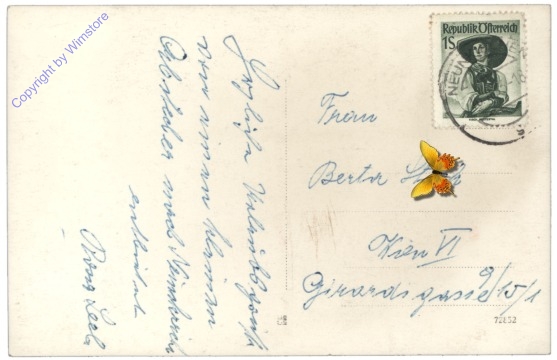 Copyright by Wimstore
Herzliche Urlaubsgrüße
von einem kleinen
Abstecher nach
entbietet
Republik Österreich
1S
NEUN
Frau
Berta
Wien VI
Girardigasse 9/15/1
72852